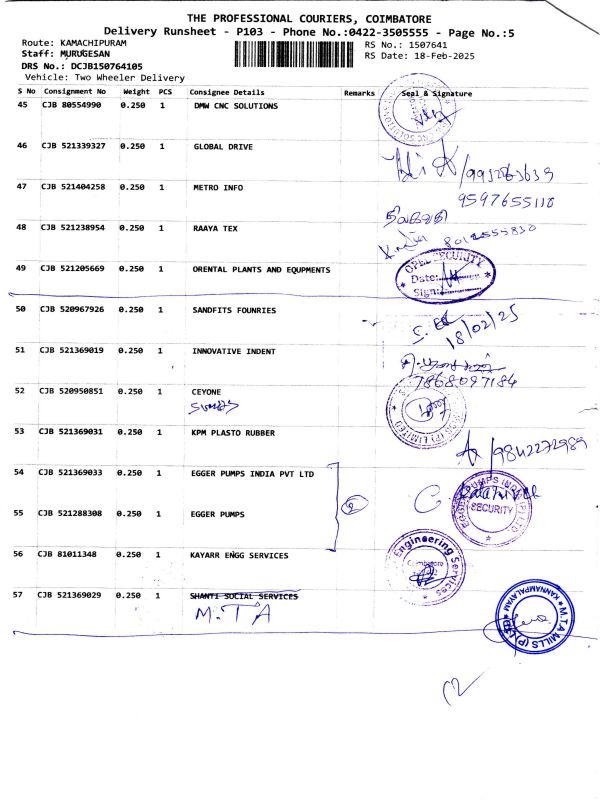 THE PROFESSIONAL COURIERS, COIMBATORE
Delivery Runsheet - P103 - Phone No.:0422-3505555 - Page No.:5
Route: KAMACHIPURAM
RS No.: 1507641
Staff: MURUGESAN
RS Date: 18-Feb-2025
DRS No.: DCJB150764105
Vehicle: Two Wheeler Delivery
S No Consignment No Weight PCS Consignee Details Remarks Seal & Signature
45 CJB 80554990 0.250 1 DMW CNC SOLUTIONS
46 CJB 521339327 0.250 1 GLOBAL DRIVE
47 CJB 521404258 0.250 1 METRO INFO
9597655110
48 CJB 521238954 0.250 1 RAAYA TEX
8012555830
49 CJB 521205669 0.250 1 ORENTAL PLANTS AND EQUPMENTS
SECURITY
Date:
Sign:
50 CJB 520967926 0.250 1 SANDFITS FOUNRIES
18/02/25
51 CJB 521369019 0.250 1 INNOVATIVE INDENT
7868097184
52 CJB 520950851 0.250 1 CEYONE
(P) LIMITED
53 CJB 521369031 0.250 1 KPM PLASTO RUBBER
9842272989
54 CJB 521369033 0.250 1 EGGER PUMPS INDIA PVT LTD
EGGER PUMPS INDIA (P) LTD
SECURITY
55 CJB 521288308 0.250 1 EGGER PUMPS
56 CJB 81011348 0.250 1 KAYARR ENGG SERVICES
Engineering Services
Coimbatore
57 CJB 521369029 0.250 1 SHANTI SOCIAL SERVICES
M.T A
M.T.A MILLS (P) LTD
KANNAMPALAYAM